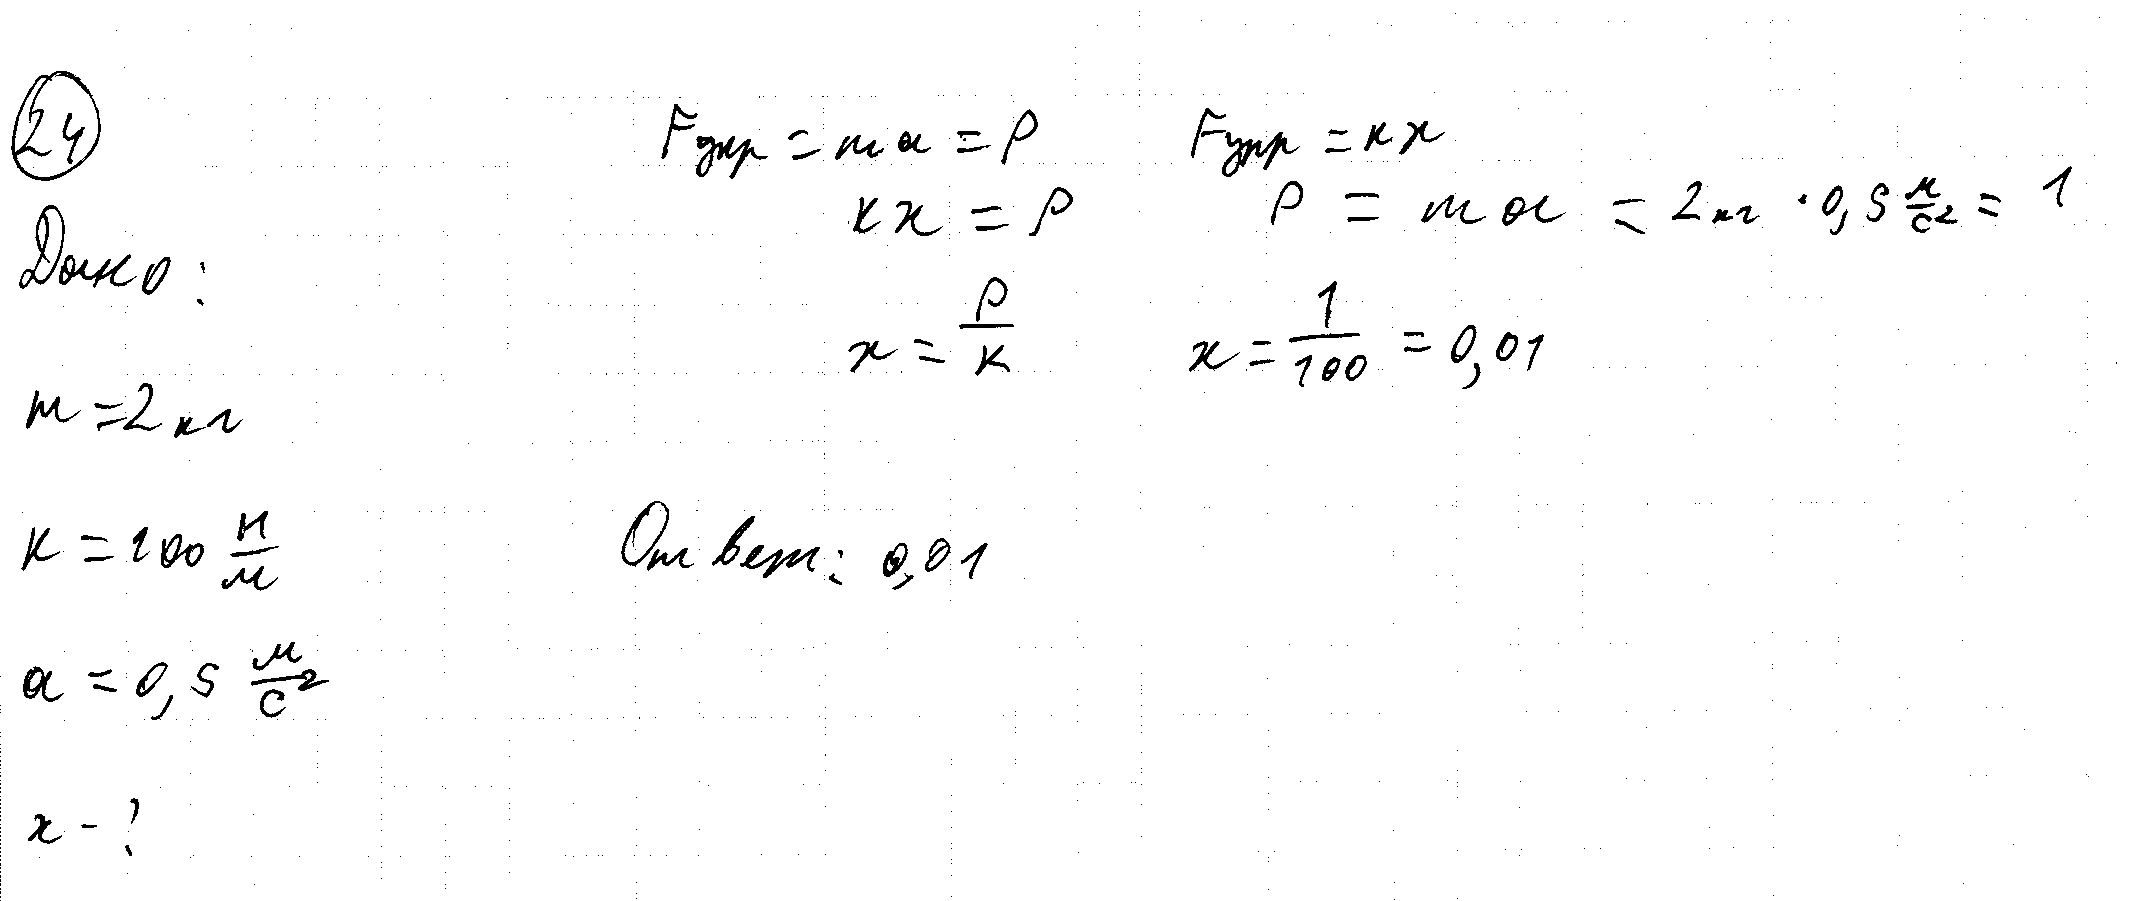 24
Дано:
m = 2 кг
к = 100 Н/м
a = 0,5 м/с²
x - ?
Fупр = ma = P
кx = P
x = P/к
Fупр = кx
P = ma = 2 кг · 0,5 м/с² = 1
x = 1/100 = 0,01
Ответ: 0,01